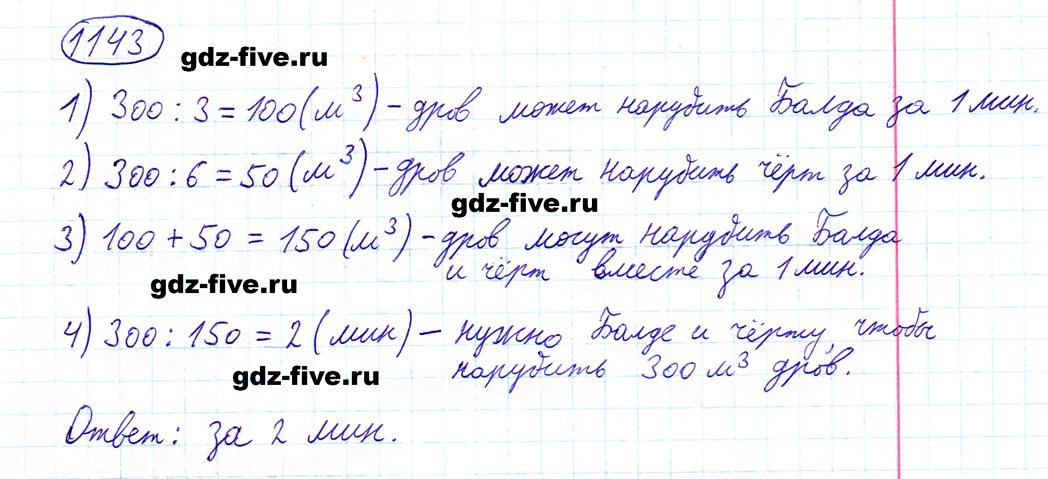 1143
gdz-five.ru
1) 300 : 3 = 100 (м³) - дров может нарубить Балда за 1 мин.
2) 300 : 6 = 50 (м³) - дров может нарубить чёрт за 1 мин.
gdz-five.ru
3) 100 + 50 = 150 (м³) - дров могут нарубить Балда
и чёрт вместе за 1 мин.
gdz-five.ru
4) 300 : 150 = 2 (мин) - нужно Балде и чёрту, чтобы
нарубить 300 м³ дров.
gdz-five.ru
Ответ: за 2 мин.